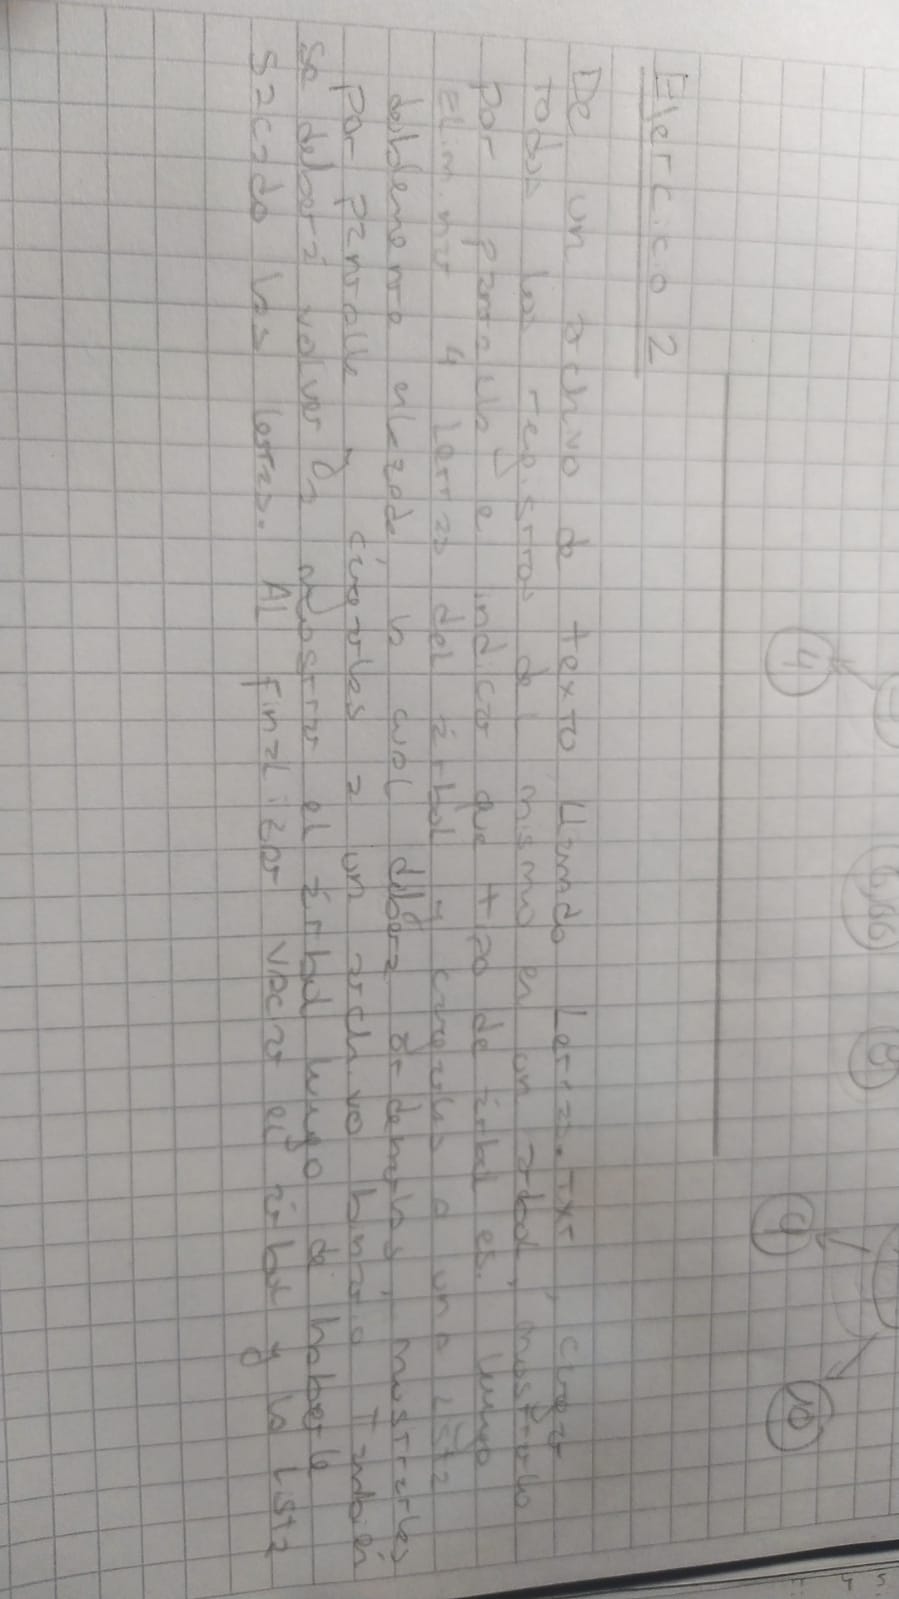 4
9
10
Ejercicio 2
De un archivo de texto llamado Letras.txt, cargar
todos los registros del mismo en un arbol, mostrarlo
por pantalla e indicar que tipo de árbol es. Luego
Eliminar 4 Letras del árbol y cargarlas a una Lista
doblemente enlazada, la cual deberá ordenarlas, mostrarlas
por pantalla y cargarlas a un archivo binario También
se deberá volver a mostrar el árbol luego de haberle
sacado las letras. AL finalizar vaciar el árbol y la Lista